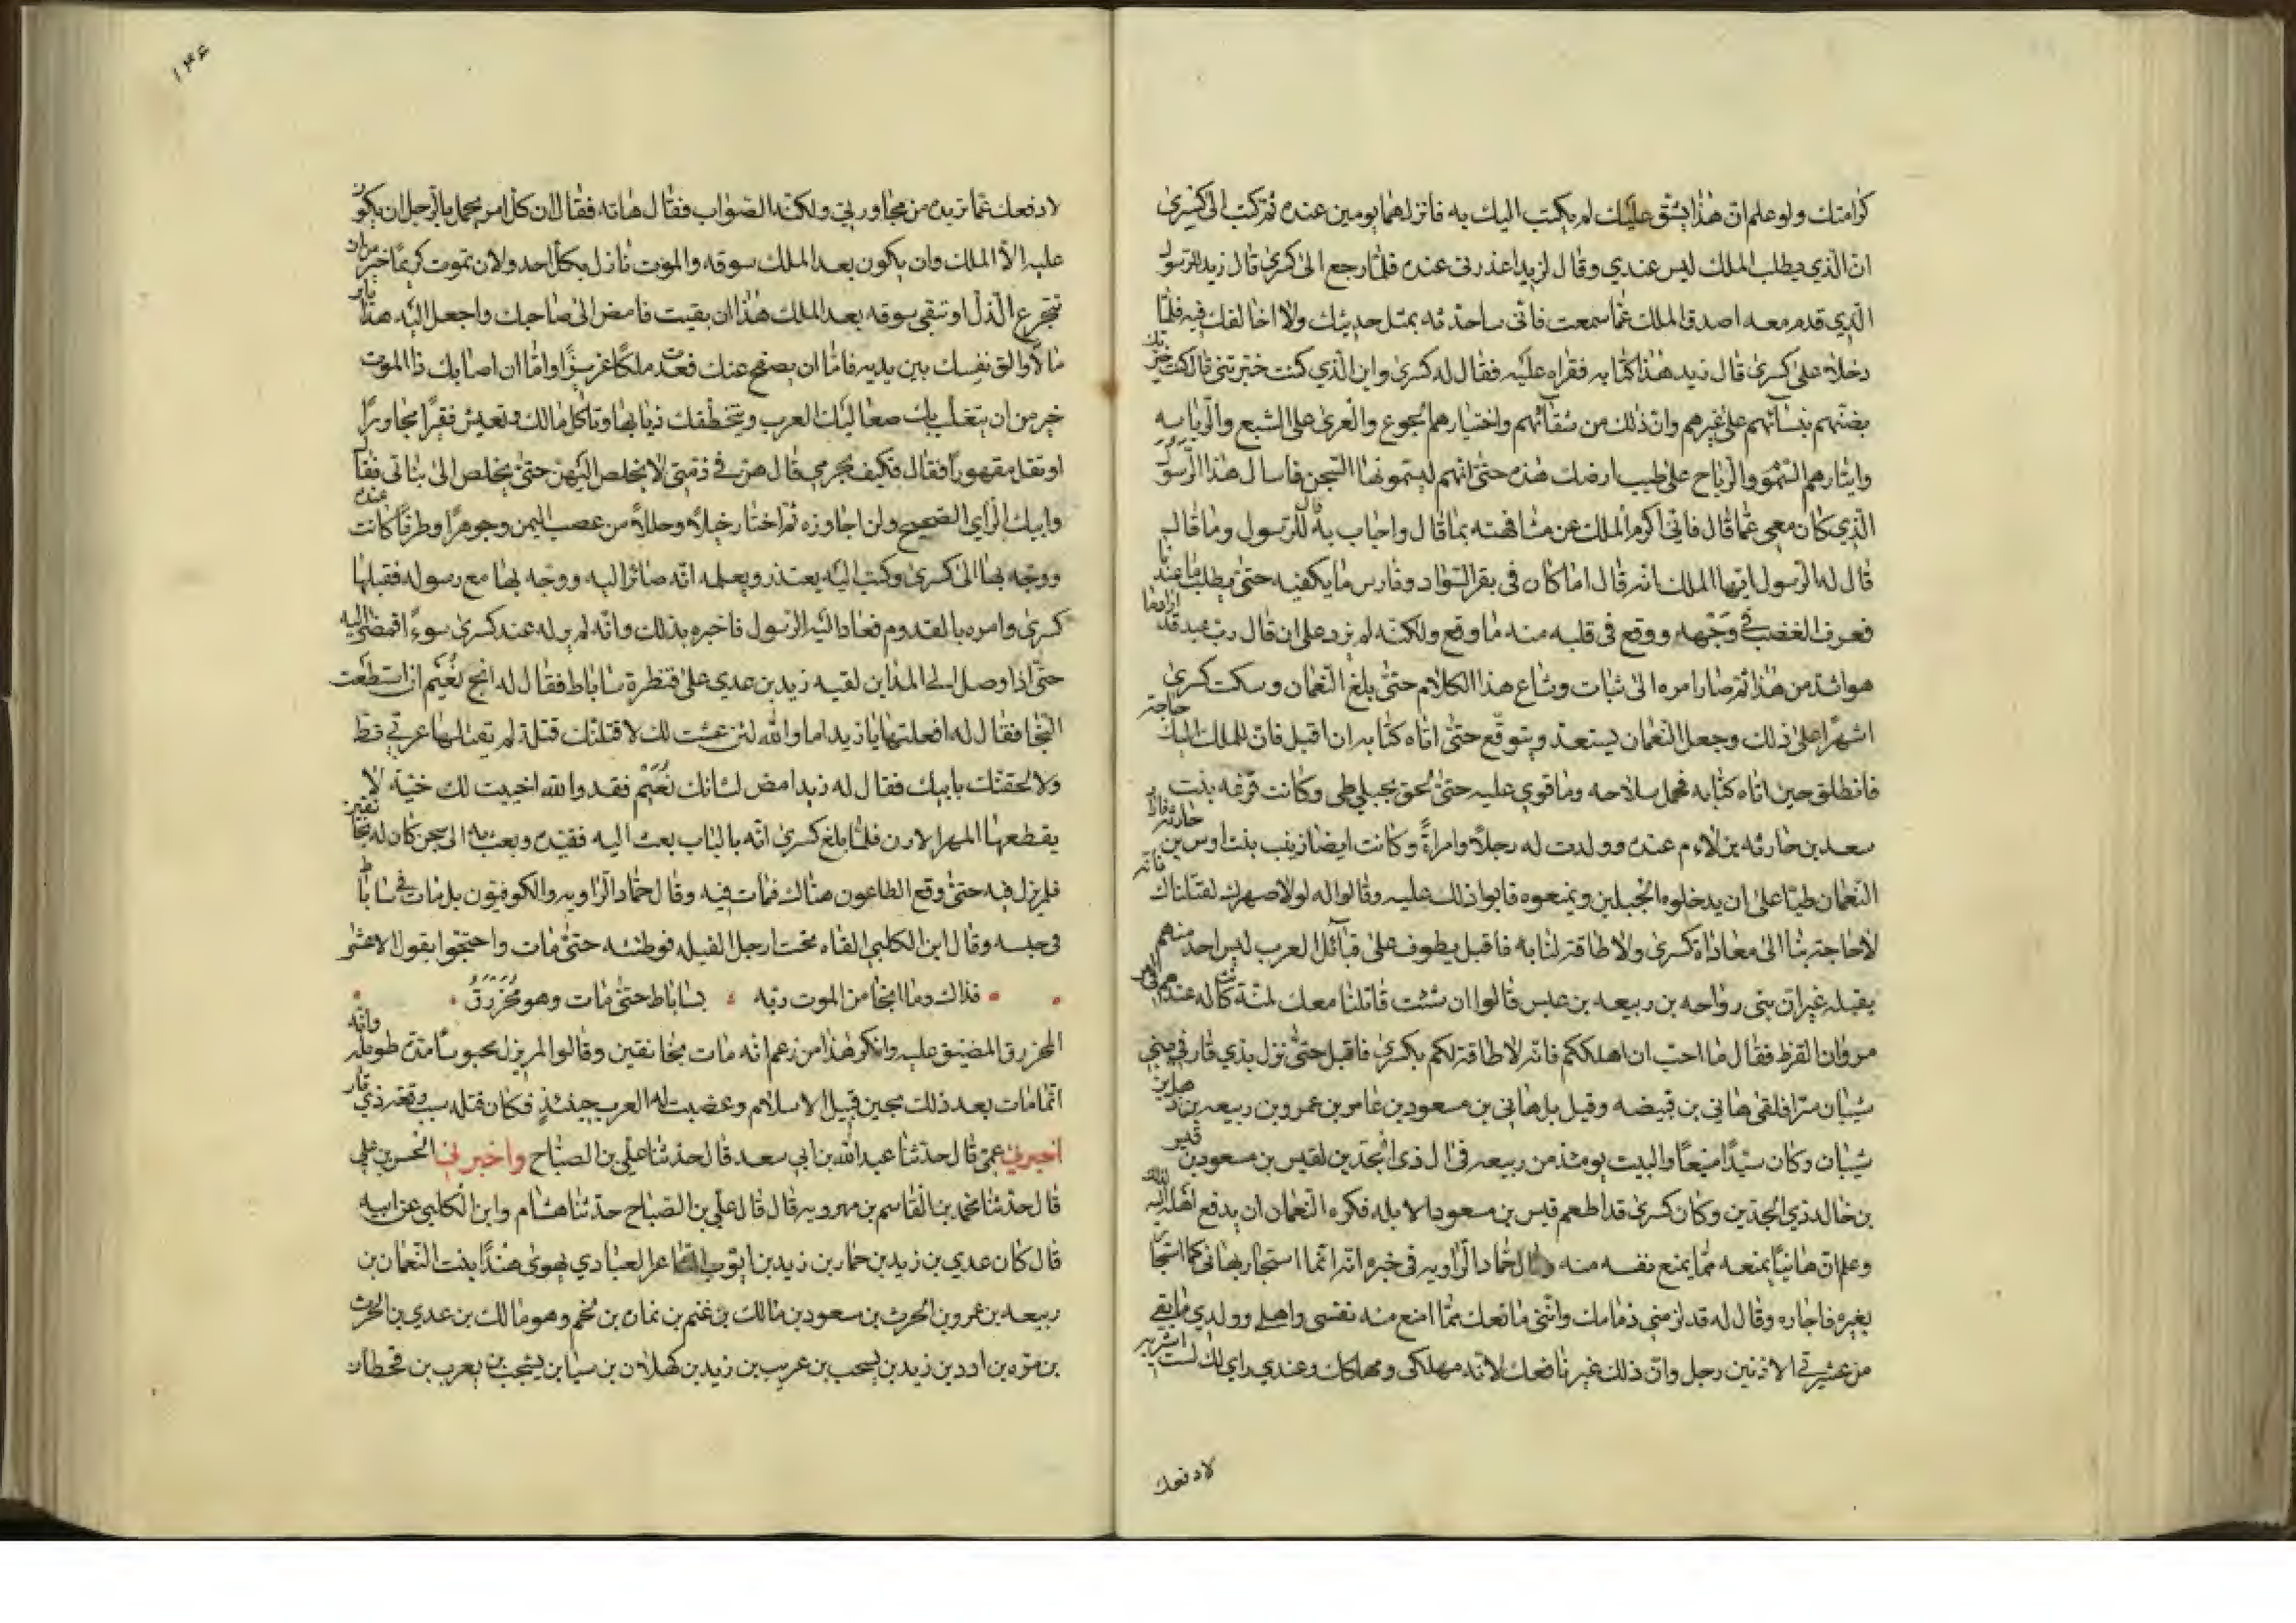 كرامتك ولو علم ان هذا يشق عليك لم يكتب اليك به فانزلهما يومين عنده ثم كتب الى كسرى
ان الذي يطلب الملك ليس عندي وقال لزيد اعذرني عنده فلما رجع الى كسرى قال زيد للرسول
الذي قدم معه اصدق الملك عما سمعت فاني ساحدثه بمثل حديثك ولا اخالفك فيه فلما
دخلا على كسرى قال زيد هذا كتابه فقراه عليه فقال له كسرى واين الذي كنت خبرتني قال كنت خبرتك
بضنتهم بنسائهم على غيرهم وان ذلك من شقائهم واختيارهم الجوع والعرى على الشبع والرياسه
وايثارهم السموم والرياح على طيب ارضك هذه حتى انهم ليسمونها السجن فاسال هذا الرسول
الذي كان معي عما قال فاني اكرم الملك عن مشافهته بما قال واجاب به قال للرسول وما قال
قال له الرسول ايها الملك انه قال اما كان في بقر السواد وفارس ما يكفيه حتى يطلب ما عندنا
فعرف الغضب في وجهه ووقع في قلبه منه ما وقع ولكنه لم يزد على ان قال رب عبد قد اراد ما
هو اشد من هذا ثم صار امره الى تباب وشاع هذا الكلام حتى بلغ النعمان وسكت كسرى
اشهرا على ذلك وجعل النعمان يستعد ويتوقع حتى اتاه كتابه ان اقبل فان للملك اليك حاجة
فانطلق حين اتاه كتابه فحمل سلاحه وما قوي عليه حتى لحق بجبلي طي وكانت فرعه بنت
سعد بن حارثه بن لام عنده وولدت له رجلا وامراة وكانت ايضا زينب بنت اوس بن حارثه فاراد
النعمان طيا على ان يدخلوه الجبلين ويمنعوه فابوا ذلك عليه وقالوا له لولا صهرك لقتلناك فانه
لا حاجة بنا الى معاداة كسرى ولا طاقة لنا به فاقبل يطوف على قبائل العرب ليس احد منهم
يقبله غير ان بني رواحه بن ربيعه بن عبس قالوا ان شئت قاتلنا معك لمنة كانت له عندهم في امر
مروان القرظ فقال ما احب ان اهلككم فانه لا طاقة لكم بكسرى فاقبل حتى نزل بذي قار في بني
شيبان سرا فلقى هاني بن قبيضه وقيل بل هاني بن مسعود بن عامر بن عمرو بن ربيعه بن ذهل بن
شيبان وكان سيدا منيعا والبيت يومئذ من ربيعه في ال ذي الجدين لقيس بن مسعود بن قيس
بن خالد ذي الجدين وكان كسرى قد اطعم قيس بن مسعود الابله فكره النعمان ان يدفع اهله اليه لذلك
وعلم ان هانيا يمنعه مما يمنع نفسه منه وقال حماد الراويه في خبره انه انما استجار بهاني كما استجار
بغيره فاجاره وقال له قد لزمني ذمامك وانني مانعك مما امنع منه نفسي واهلي وولدي ما بقي
من عشيرتي الادنين رجل وان ذلك غير نافعك لانه مهلكي ومهلكك وعندي راي لك لست اشير به
لادفعك
١٣۶
لادفعك عما تريده من مجاورتي ولكنه الصواب فقال هاته فقال ان كل امر يجمل بالرجل ان يكون
عليه الا الملك وان يكون بعد الملك سوقه والموت نازل بكل احد ولان تموت كريما خير من ان
تتجرع الذل او تبقى سوقه بعد الملك هذا ان بقيت فامض الى صاحبك واجعل اليه هدايا
مالا والق نفسك بين يديه فاما ان يصفح عنك فعدت ملكا عزيزا واما ان اصابك فالموت
خير من ان يتغلب بك صعاليك العرب ويتخطفك ذيابها وتاكل مالك وتعيش فقيرا مجاورا
او تقتل مقهورا فقال فكيف بحرمي قال هن في ذمتي لا يخلص اليهن حتى يخلص الى بناتي فقال
وابيك الراي الصحيح ولن اجاوزه ثم اختار خيلا وحللا من عصب اليمن وجوهرا وطرفا كانت عنده
ووجه بها الى كسرى وكتب اليه يعتذر ويعلمه انه صائر اليه ووجه بها مع رسوله فقبلها
كسرى وامره بالقدوم فعاد اليه الرسول فاخبره بذلك وانه لم ير له عند كسرى سوءا فمضى اليه
حتى اذا وصل الى المداين لقيه زيد بن عدي على قنطرة ساباط فقال له انج نعيم ان استطعت
النجا فقال له افعلتها يا زيد اما والله لئن عشت لك لاقتلنك قتلة لم يقتلها عربي قط
ولالحقنك بابيك فقال له زيد امض لشانك نعيم فقد والله اخيت لك خية لا
يقطعها المهر الارن فلما بلغ كسرى انه بالباب بعث اليه فقيده وبعث به الى سجن كان له بخانقين
فلم يزل فيه حتى وقع الطاعون هناك فمات فيه وقال حماد الراويه والكوفيون بل مات في ساباط
في حبسه وقال ابن الكلبي القاه تحت ارجل الفيله فوطئته حتى مات واحتجوا بقول الاعشى
فذاك وما انجا من الموت ربه بساباط حتى مات وهو محزرق
المحزرق المضيق عليه وانكر هذا من زعم انه مات بخانقين وقالوا لم يزل محبوسا مدة طويله وانه
انما مات بعد ذلك بحين قبيل الاسلام وغضبت له العرب حينئذ فكان قتله سبب وقعه ذي قار
اخبرني عمي قال حدثنا عبد الله بن ابي سعد قال حدثنا علي بن الصباح واخبرني الحسن بن علي
قال حدثنا محمد بن القاسم بن مهرويه قال قال علي بن الصباح حدثنا هشام وابن الكلبي عن ابيه
قال كان عدي بن زيد بن حمار بن زيد بن ايوب الشاعر العبادي يهوى هندا بنت النعمان بن
ربيعه بن عمرو بن الحرث بن سعود بن مالك بن غنم بن نماره بن لخم وهو مالك بن عدي بن الحرث
بن مره بن ادد بن زيد بن يسحب بن عريب بن زيد بن كهلان بن سبا بن يشجب بن يعرب بن قحطان